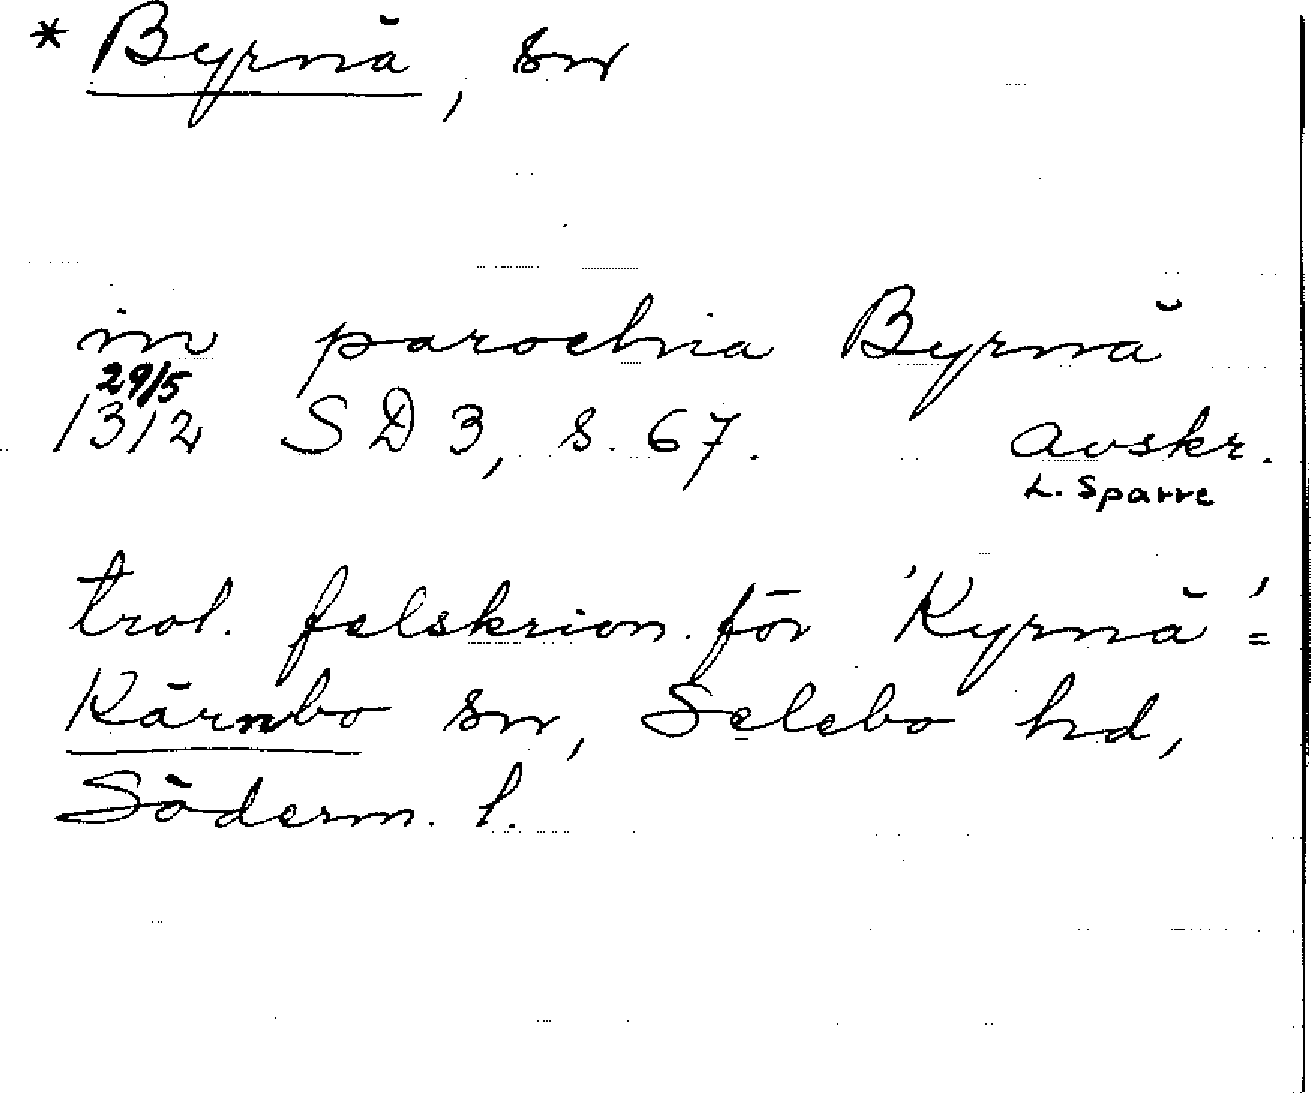 * Byrnå, sn
in parochia Byrnå
29/5
1312 SD 3, s. 67. avskr.
L. Sparre
trol. felskrivn. för 'Kyrnå' =
Kärnbo sn, Selebo hd,
Söderm. l.